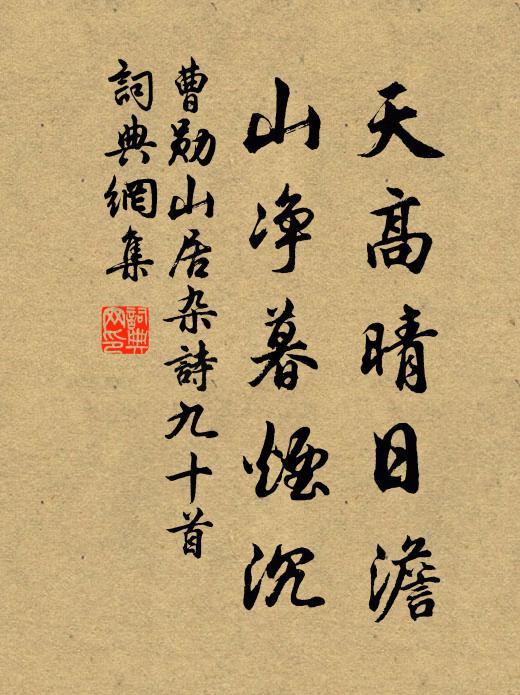 天高晴日澹
山净暮煙沉
曹勛山居杂詩九十首
詞典網集
詞典网印